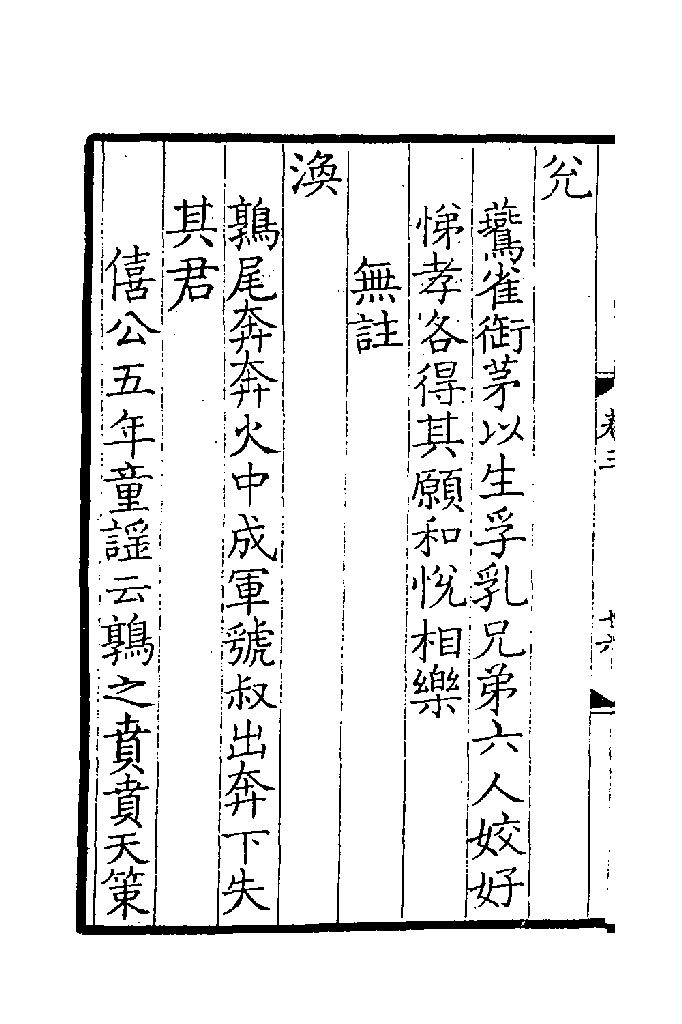 兊
鷰雀銜茅以生孚乳兄弟六人姣好
悌孝各得其願和悅相樂
無註
渙
鶉尾奔奔火中成軍虢叔出奔下失
其君
僖公五年童謡云鶉之賁賁天策
卷三
十六